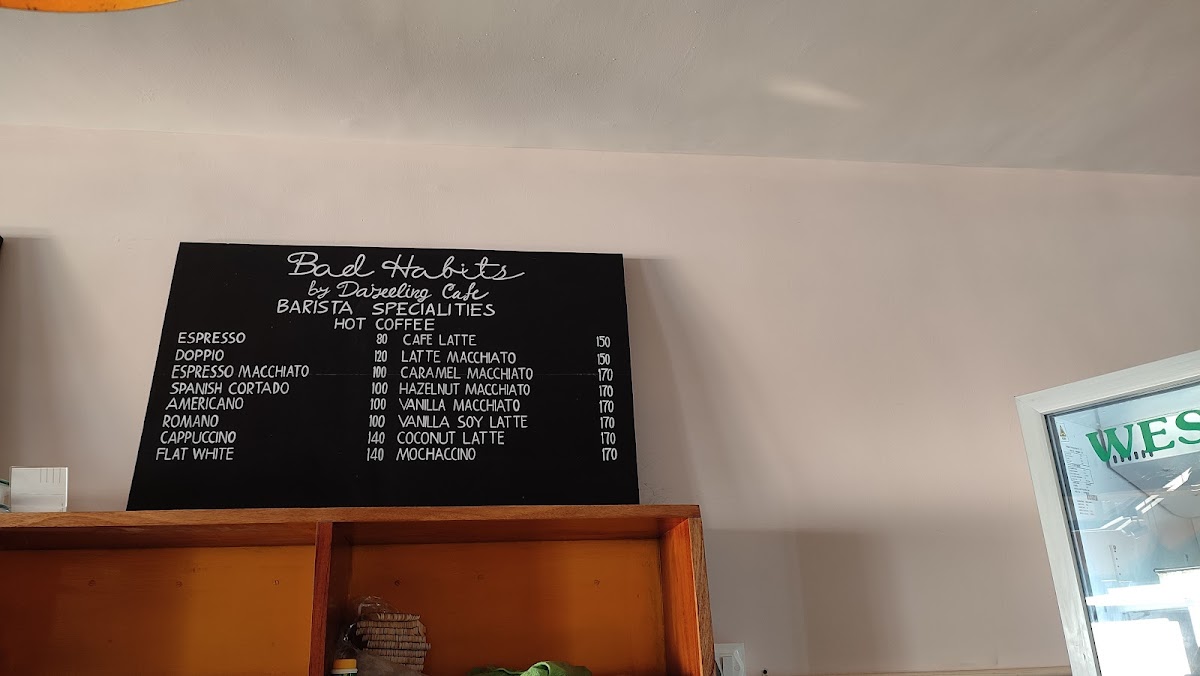 Bad Habits
by Darjeeling Cafe
BARISTA SPECIALITIES
HOT COFFEE
ESPRESSO 80 CAFE LATTE 150
DOPPIO 120 LATTE MACCHIATO 150
ESPRESSO MACCHIATO 100 CARAMEL MACCHIATO 170
SPANISH CORTADO 100 HAZELNUT MACCHIATO 170
AMERICANO 100 VANILLA MACCHIATO 170
ROMANO 100 VANILLA SOY LATTE 170
CAPPUCCINO 140 COCONUT LATTE 170
FLAT WHITE 140 MOCHACCINO 170
WES